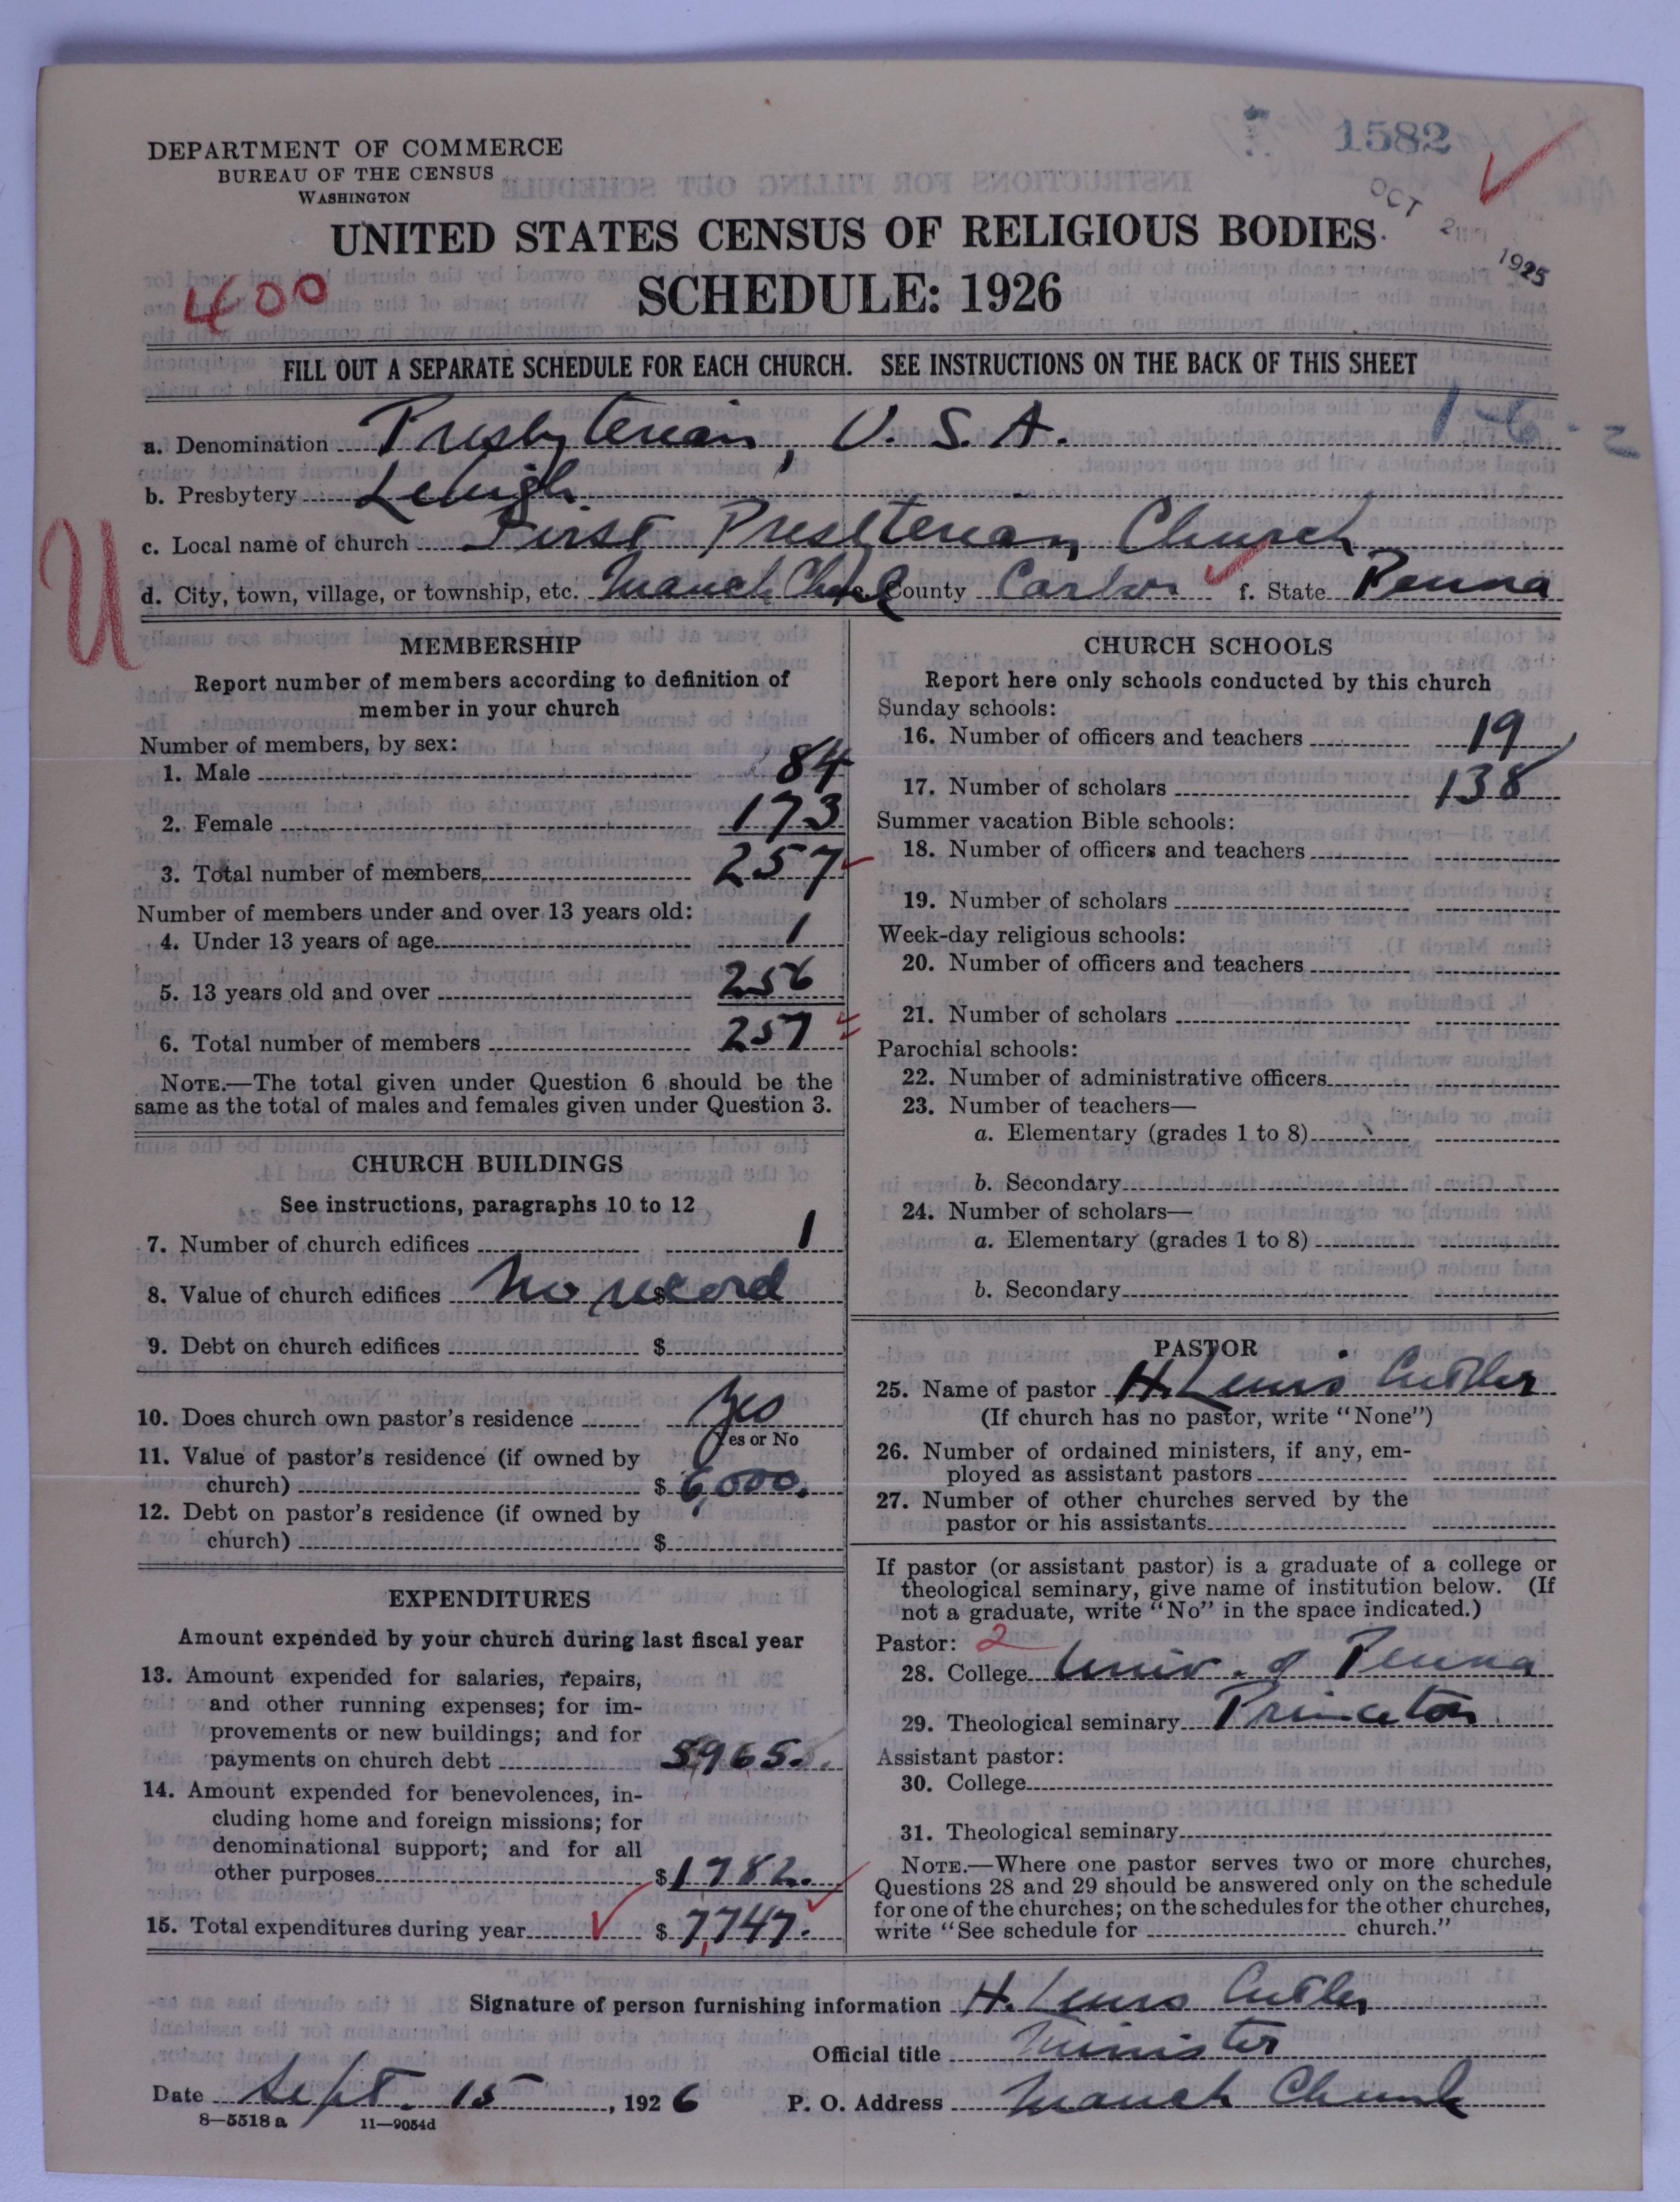 1582
OCT 2 1925
DEPARTMENT OF COMMERCE
BUREAU OF THE CENSUS
WASHINGTON
UNITED STATES CENSUS OF RELIGIOUS BODIES
SCHEDULE: 1926
400
FILL OUT A SEPARATE SCHEDULE FOR EACH CHURCH. SEE INSTRUCTIONS ON THE BACK OF THIS SHEET
a. Denomination Presbyterian, U.S.A.
b. Presbytery Lehigh
U
c. Local name of church First Presbterian Church
d. City, town, village, or township, etc. Mauch Chunk e. County Carbon f. State Penna
MEMBERSHIP
Report number of members according to definition of
member in your church
Number of members, by sex:
1. Male 84
2. Female 173
3. Total number of members 257
Number of members under and over 13 years old:
4. Under 13 years of age 1
5. 13 years old and over 256
6. Total number of members 257
NOTE.—The total given under Question 6 should be the
same as the total of males and females given under Question 3.
CHURCH BUILDINGS
See instructions, paragraphs 10 to 12
7. Number of church edifices 1
8. Value of church edifices $ No record
9. Debt on church edifices $
10. Does church own pastor's residence Yes
Yes or No
11. Value of pastor's residence (if owned by
church) $ 6,000.
12. Debt on pastor's residence (if owned by
church) $
EXPENDITURES
Amount expended by your church during last fiscal year
13. Amount expended for salaries, repairs,
and other running expenses; for im-
provements or new buildings; and for
payments on church debt 5965.
14. Amount expended for benevolences, in-
cluding home and foreign missions; for
denominational support; and for all
other purposes $ 1782.
15. Total expenditures during year $ 7,747.
CHURCH SCHOOLS
Report here only schools conducted by this church
Sunday schools:
16. Number of officers and teachers 19
17. Number of scholars 138
Summer vacation Bible schools:
18. Number of officers and teachers
19. Number of scholars
Week-day religious schools:
20. Number of officers and teachers
21. Number of scholars
Parochial schools:
22. Number of administrative officers
23. Number of teachers—
a. Elementary (grades 1 to 8)
b. Secondary
24. Number of scholars—
a. Elementary (grades 1 to 8)
b. Secondary
PASTOR
25. Name of pastor H. Lewis Cutler
(If church has no pastor, write "None")
26. Number of ordained ministers, if any, em-
ployed as assistant pastors
27. Number of other churches served by the
pastor or his assistants
If pastor (or assistant pastor) is a graduate of a college or
theological seminary, give name of institution below. (If
not a graduate, write "No" in the space indicated.)
Pastor: 2
28. College Univ. of Penna
29. Theological seminary Princeton
Assistant pastor:
30. College
31. Theological seminary
NOTE.—Where one pastor serves two or more churches,
Questions 28 and 29 should be answered only on the schedule
for one of the churches; on the schedules for the other churches,
write "See schedule for church."
Signature of person furnishing information H. Lewis Cutler
Official title Minister
Date Sept. 15, 1926 P. O. Address Mauch Chunk
8—5518a 11—9054d